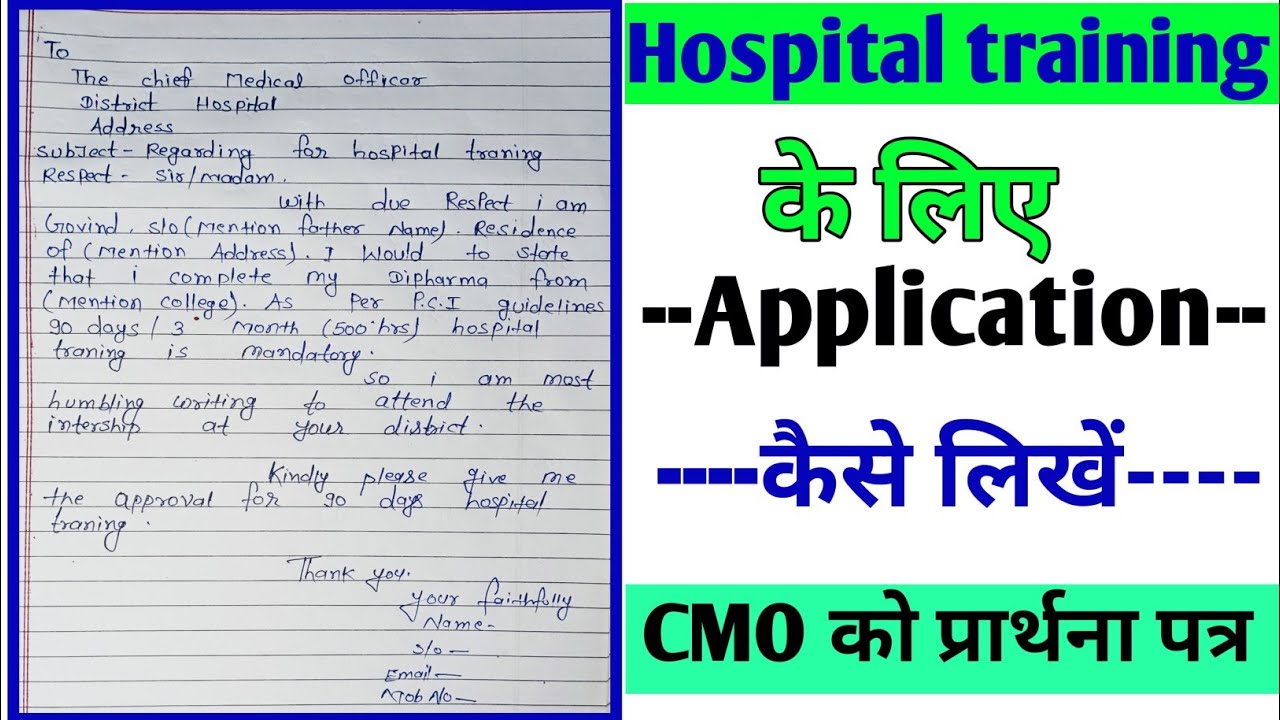 To
The chief Medical officar
District Hospital
Address
Subject - Regarding for hospital traning
Respect - Sir/madam.
With due Respect i am
Govind. s/o (Mention father Name). Residence
of (Mention Address). I Would to state
that i complete my Dipharma from
(Mention college). As Per P.C.I guidelines
90 days / 3 Month (500 hrs) hospital
traning is mandatory.
So i am most
humbling writing to attend the
intership at your district.
Kindly please give me
the approval for 90 days hospital
traning.
Thank you.
your faithfully
Name-
S/o -
Email -
Mob No -
Hospital training
के लिए
--Application--
----कैसे लिखें----
CMO को प्रार्थना पत्र